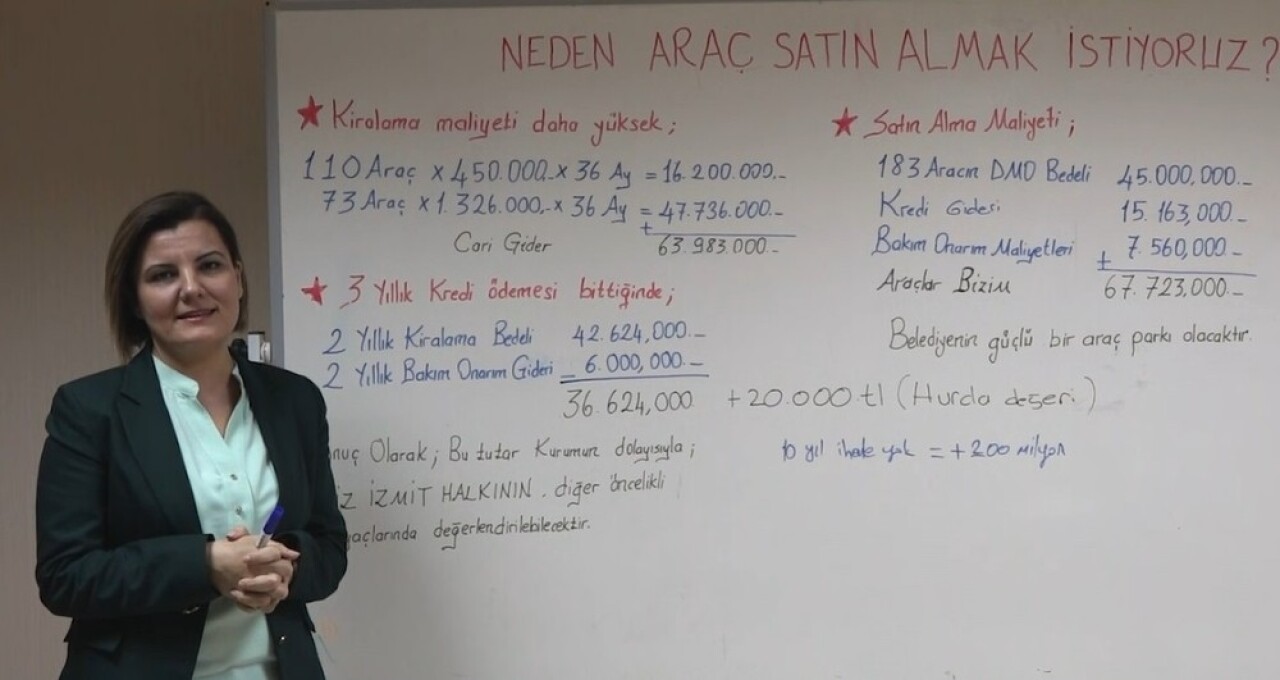 NEDEN ARAÇ SATIN ALMAK İSTİYORUZ?
★ Kiralama maliyeti daha yüksek;
110 Araç x 450.000.- x 36 Ay = 16.200.000.-
73 Araç x 1.326.000,- x 36 Ay = 47.736.000.-
+
Cari Gider 63.983.000.-
★ 3 Yıllık Kredi ödemesi bittiğinde;
2 Yıllık Kiralama Bedeli 42.624,000.-
2 Yıllık Bakım Onarım Gideri - 6.000,000.-
36.624,000 +20.000 tl (Hurda değeri)
nuç Olarak; Bu tutar Kurumun dolayısıyla;
İZ İZMİT HALKININ. diğer öncelikli
açlarında değerlendirilebilecektir.
★ Satın Alma Maliyeti;
183 Aracın DMO Bedeli 45.000,000.-
Kredi Gidesi 15.163,000.-
Bakım Onarım Maliyetleri + 7.560,000.-
Araçlar Bizim 67.723,000.-
Belediyenin güçlü bir araç parkı olacaktır.
10 yıl ihale yok = +200 milyon